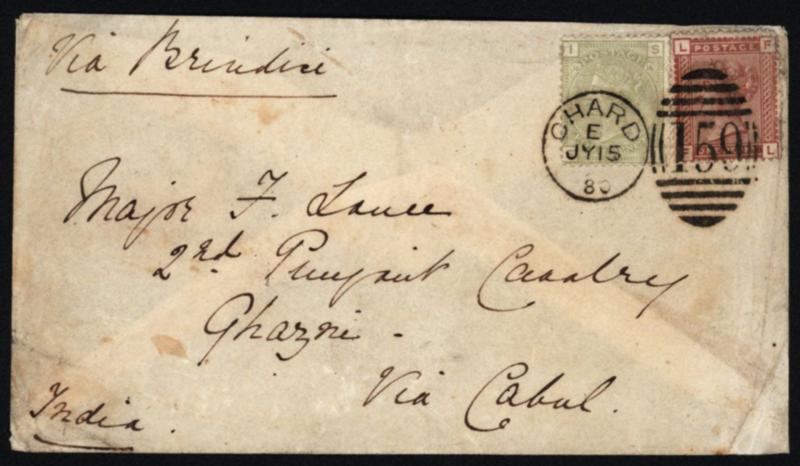 Via Brindisi
I S
POSTAGE
L F
POSTAGE
L
CHARD
E
JY15
80
159
Major F. Lance
2nd Punjaub Cavalry
Ghazni.
Via Cabul.
India.